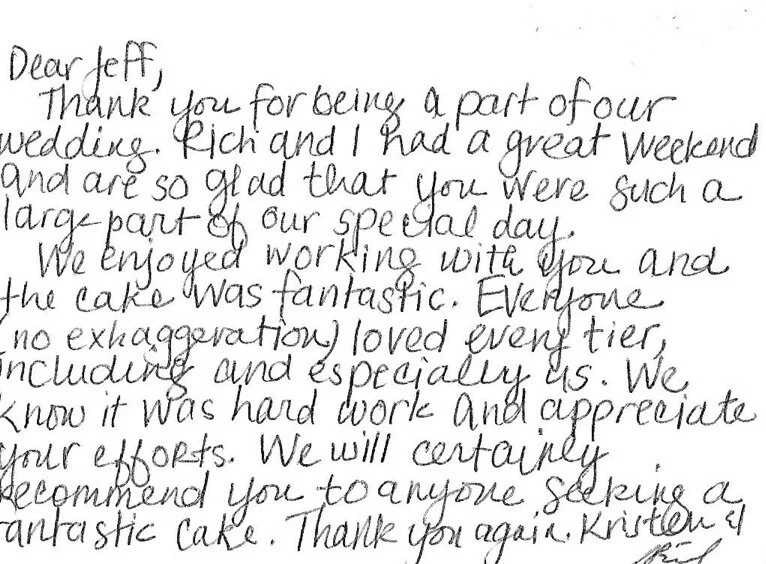 Dear Jeff,
Thank you for being a part of our
wedding. Rich and I had a great weekend
and are so glad that you were such a
large part of our special day.
We enjoyed working with you and
the cake was fantastic. Everyone
(no exhaggeration) loved every tier,
including and especially us. We
know it was hard work and appreciate
your efforts. We will certainly
recommend you to anyone seeking a
fantastic cake. Thank you again. Kristen &
Rich